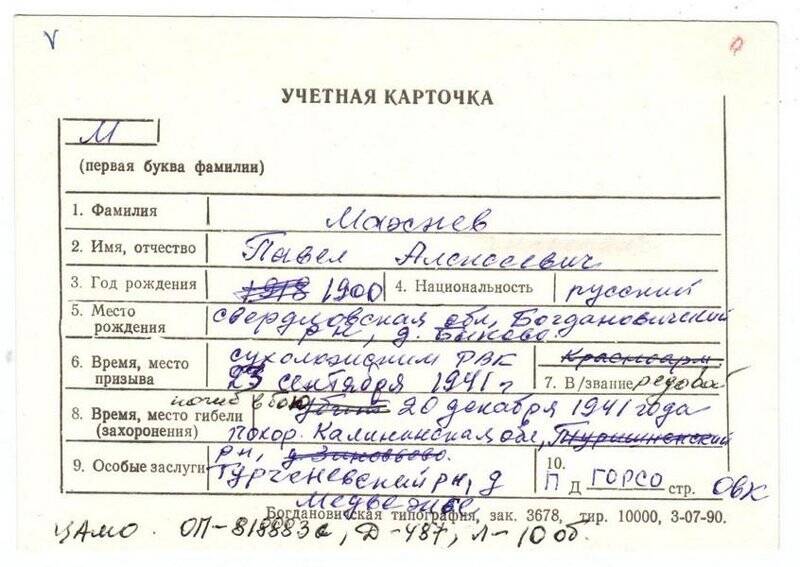 V
УЧЕТНАЯ КАРТОЧКА
М
(первая буква фамилии)
1. Фамилия Махнев
2. Имя, отчество Павел Алексеевич
3. Год рождения 1918 1900 4. Национальность русский
5. Место рождения свердловская обл, Богдановичский
р-н, д. Быково.
6. Время, место призыва сухоложским РВК
23 сентября 1941 г
Красноарм
7. В/звание рядовой
погиб в бою
8. Время, место гибели (захоронения) убит 20 декабря 1941 года
похор. Калининская обл,
р-н,
9. Особые заслуги Тургеневский р-н, д
Медвежье
10.
П Д ГОРСО стр. ОВК
Богдановичская типография, зак. 3678, тир. 10000, 3-07-90.
ЦАМО. ОП-818883с, Д-487, Л-10 об.